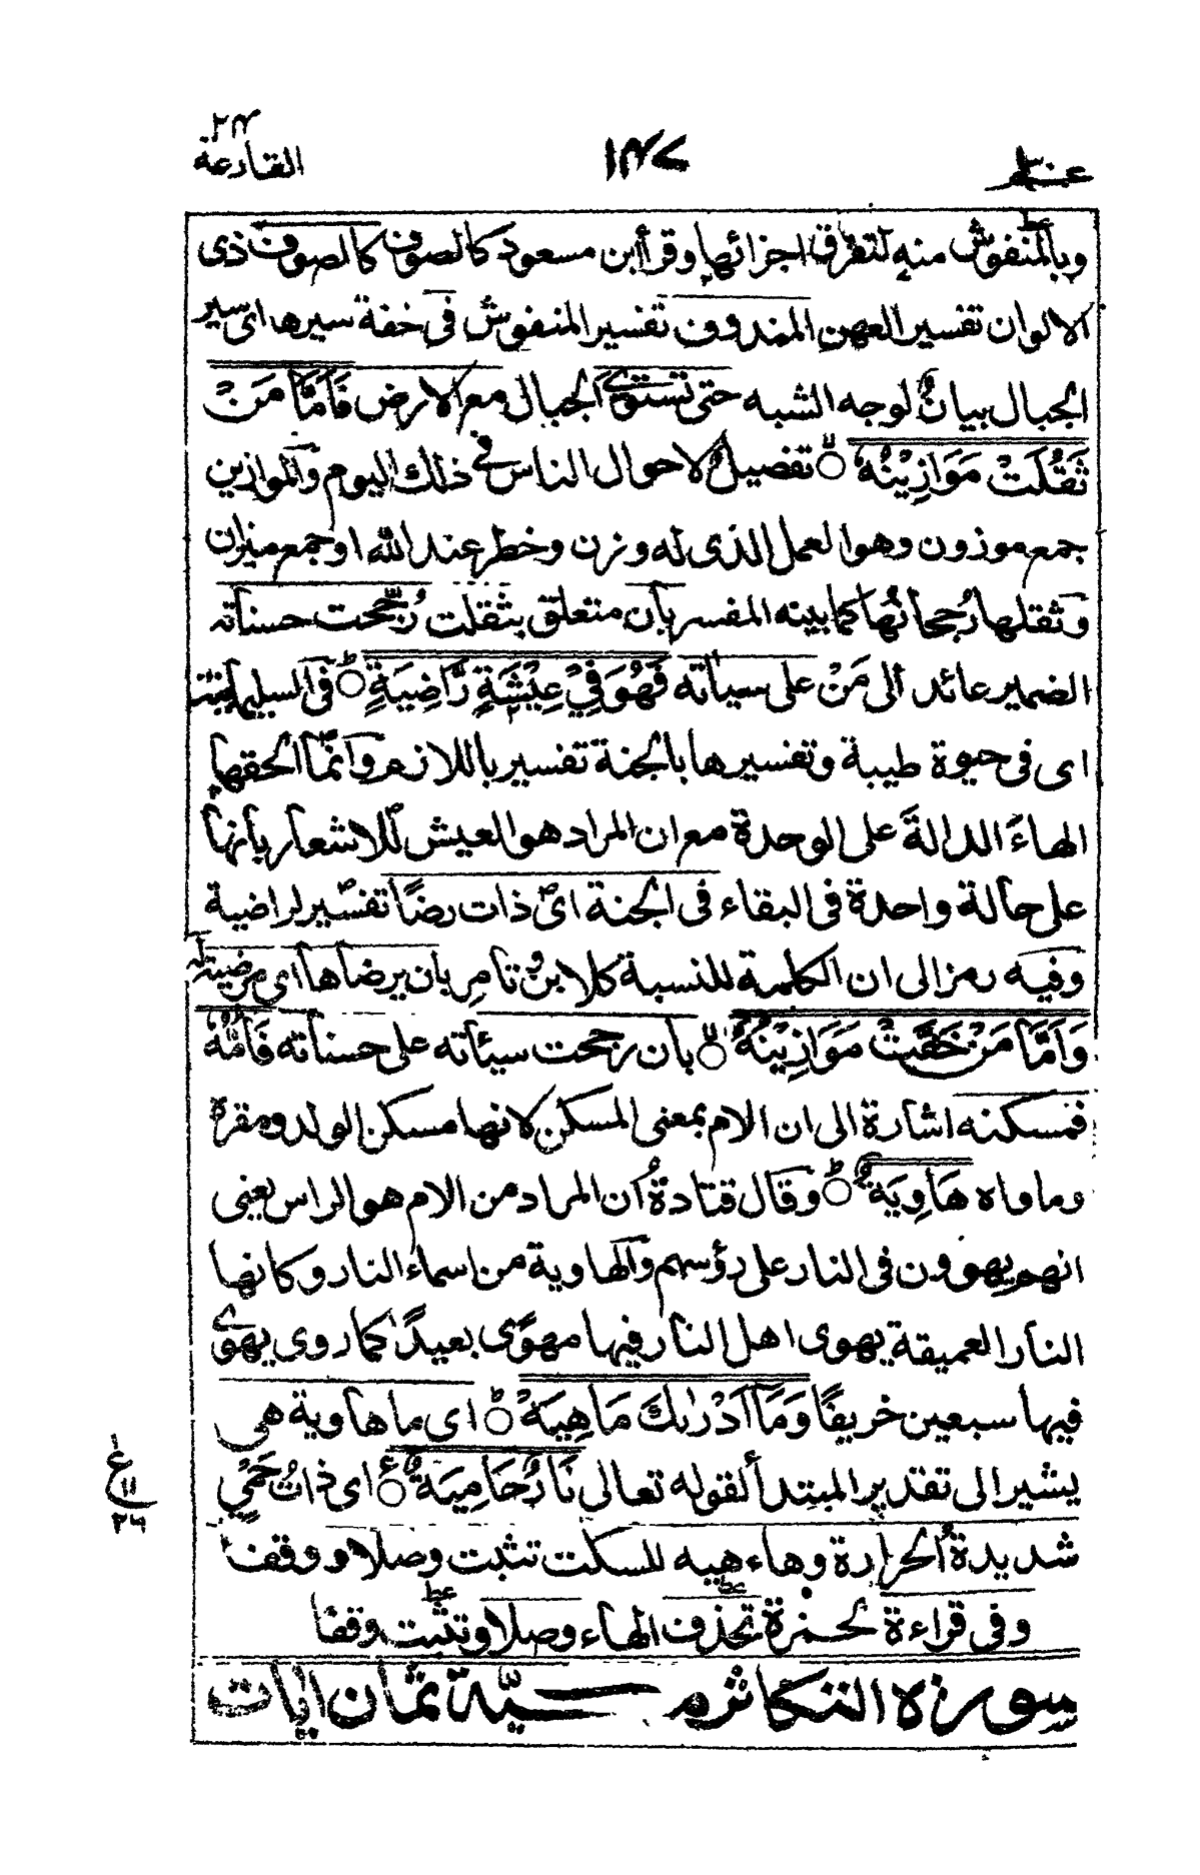 عم ٣٠
١٤٧
القارعة
٢٤
وبالمنفوش منه لتفرق اجزائها وقرأ ابن مسعود كالصوف كالصوف ذى
الالوان تفسير العهن المندوف تفسير المنفوش فى خفة سيرها اى سير
الجبال بيان لوجه الشبه حتى تستوى الجبال مع الارض فَاَمَّا مَنْ
ثَقُلَتْ مَوَازِيْنُهٗ تفصيل لاحوال الناس فى ذلك اليوم والموازين
جمع موزون وهو العمل الذى له وزن وخطر عند الله او جمع ميزان
وثقلها رُجحانُها كما بينه المفسر بأن متعلق بثقلت رُجّحت حسناته
الضمير عائد الى مَنْ على سيأته فَهُوَ فِيْ عِيْشَةٍ رَّاضِيَةٍ فى
اى فى حيوة طيبة وتفسيرها بالجنة تفسير باللازم وانما الحقها
الهاءَ الدالةَ على الوحدة مع ان المراد هو العيش للاشعار بأنها
على حالة واحدة فى البقاء فى الجنة اى ذات رضًا تفسير لراضية
وفيه رمز الى ان الكلمة للنسبة كلابن وتامِر بان يرضاها اى مرضية له
وَاَمَّا مَنْ خَفَّتْ مَوَازِيْنُهٗ بان رجحت سيئاته على حسناته فَاُمُّهٗ
فمسكنه اشارة الى ان الام بمعنى المسكن لانها مسكن الولد ومقره
وماواه هَاوِيَةٌ وقال قتادةُ ان المراد من الام هو الراس يعنى
انهم يهوون فى النار على رؤسهم والهاوية من اسماء النار وكانها
النار العميقة يهوى اهل النار فيها مهوًى بعيدًا كما روى يهوى
فيها سبعين خريفًا وَمَآ اَدْرٰىكَ مَاهِيَهْ اى ما هاوية هى
يشير الى تقدير المبتدأ لقوله تعالى نَارٌ حَامِيَةٌ اى ذاتُ حَمْيٍ
شديدةُ الحرارة وهاء هيه للسكت تثبت وصلا ووقفا
وفى قراءة لحمزة تحذف الهاء وصلا وتثبت وقفا
سورة التكاثر مكية ثمان ايات
ع
١١
٢٦